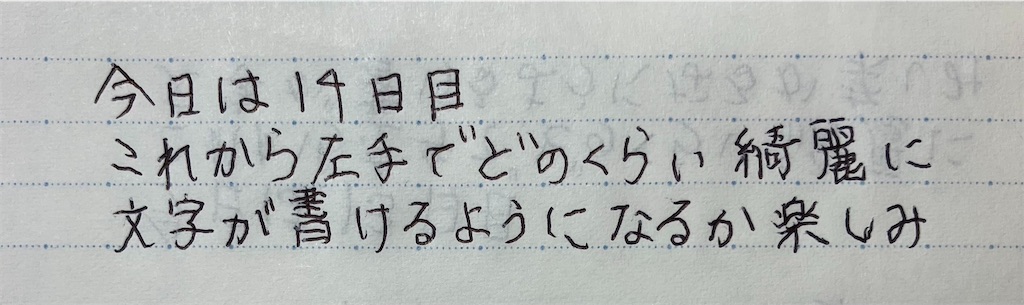 今日は14日目
これから左手でどのくらい綺麗に
文字が書けるようになるか楽しみ